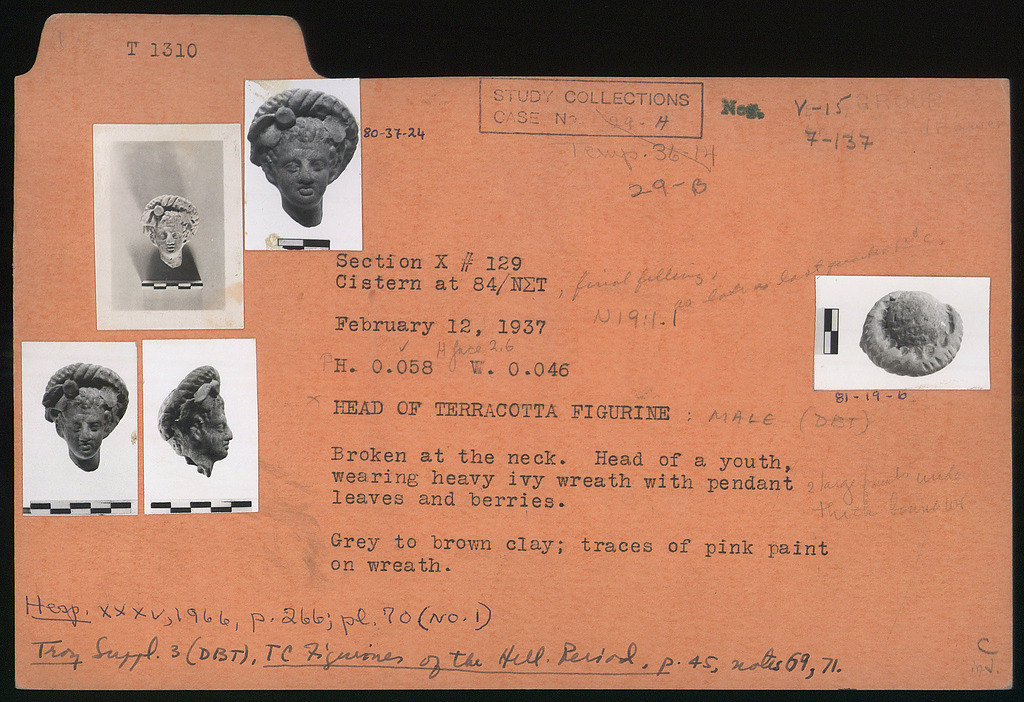 T 1310
80-37-24
STUDY COLLECTIONS
CASE No 99-H
Temp. 36-14
29-B
Neg. V-15
7-137
Section X # 129
Cistern at 84/ΝΣΤ, final filling,
as late as last quarter
N 19:1.1
February 12, 1937
H face 2.6
PH. 0.058 W. 0.046
81-19-6
HEAD OF TERRACOTTA FIGURINE : MALE (DBT)
Broken at the neck. Head of a youth,
wearing heavy ivy wreath with pendant
leaves and berries.
2 large fruits
thick
Grey to brown clay; traces of pink paint
on wreath.
Hesp. XXXV, 1966, p. 266; pl. 70 (No. 1)
Troy Suppl. 3 (DBT), TC Figurines of the Hell. Period, p. 45, notes 69, 71.
C